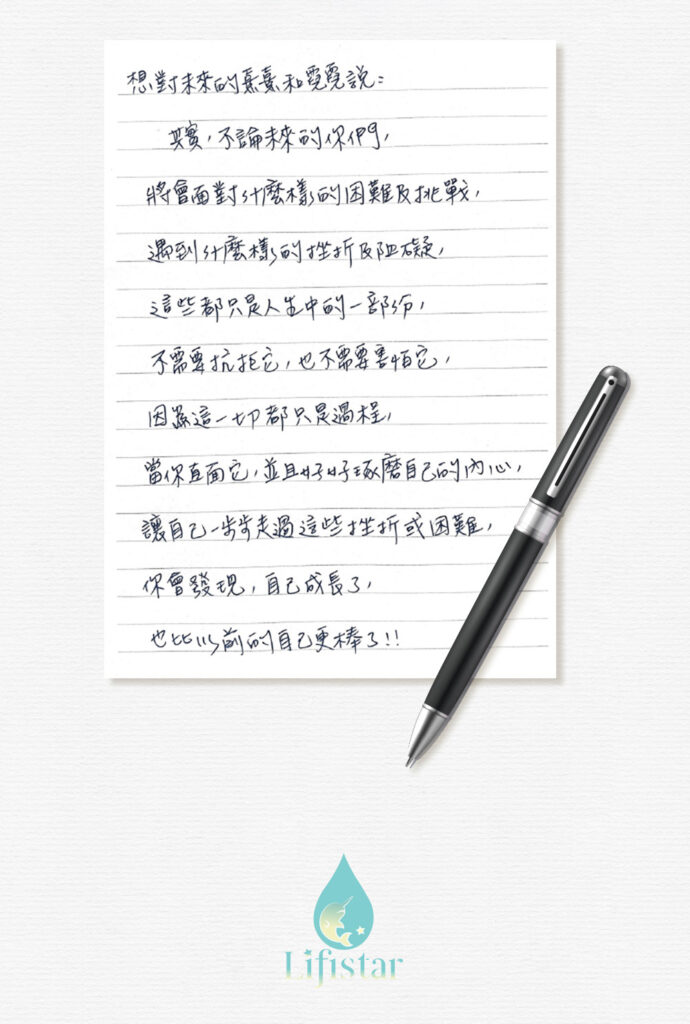 想對未來的熹熹和霓霓說：
其實，不論未來的你們，
將會面對什麼樣的困難及挑戰，
遇到什麼樣的挫折及阻礙，
這些都只是人生中的一部份，
不需要抗拒它，也不需要害怕它，
因為這一切都只是過程，
當你直面它，並且好好琢磨自己的內心，
讓自己一步步走過這些挫折或困難，
你會發現，自己成長了，
也比以前的自己更棒了!!
Lifistar